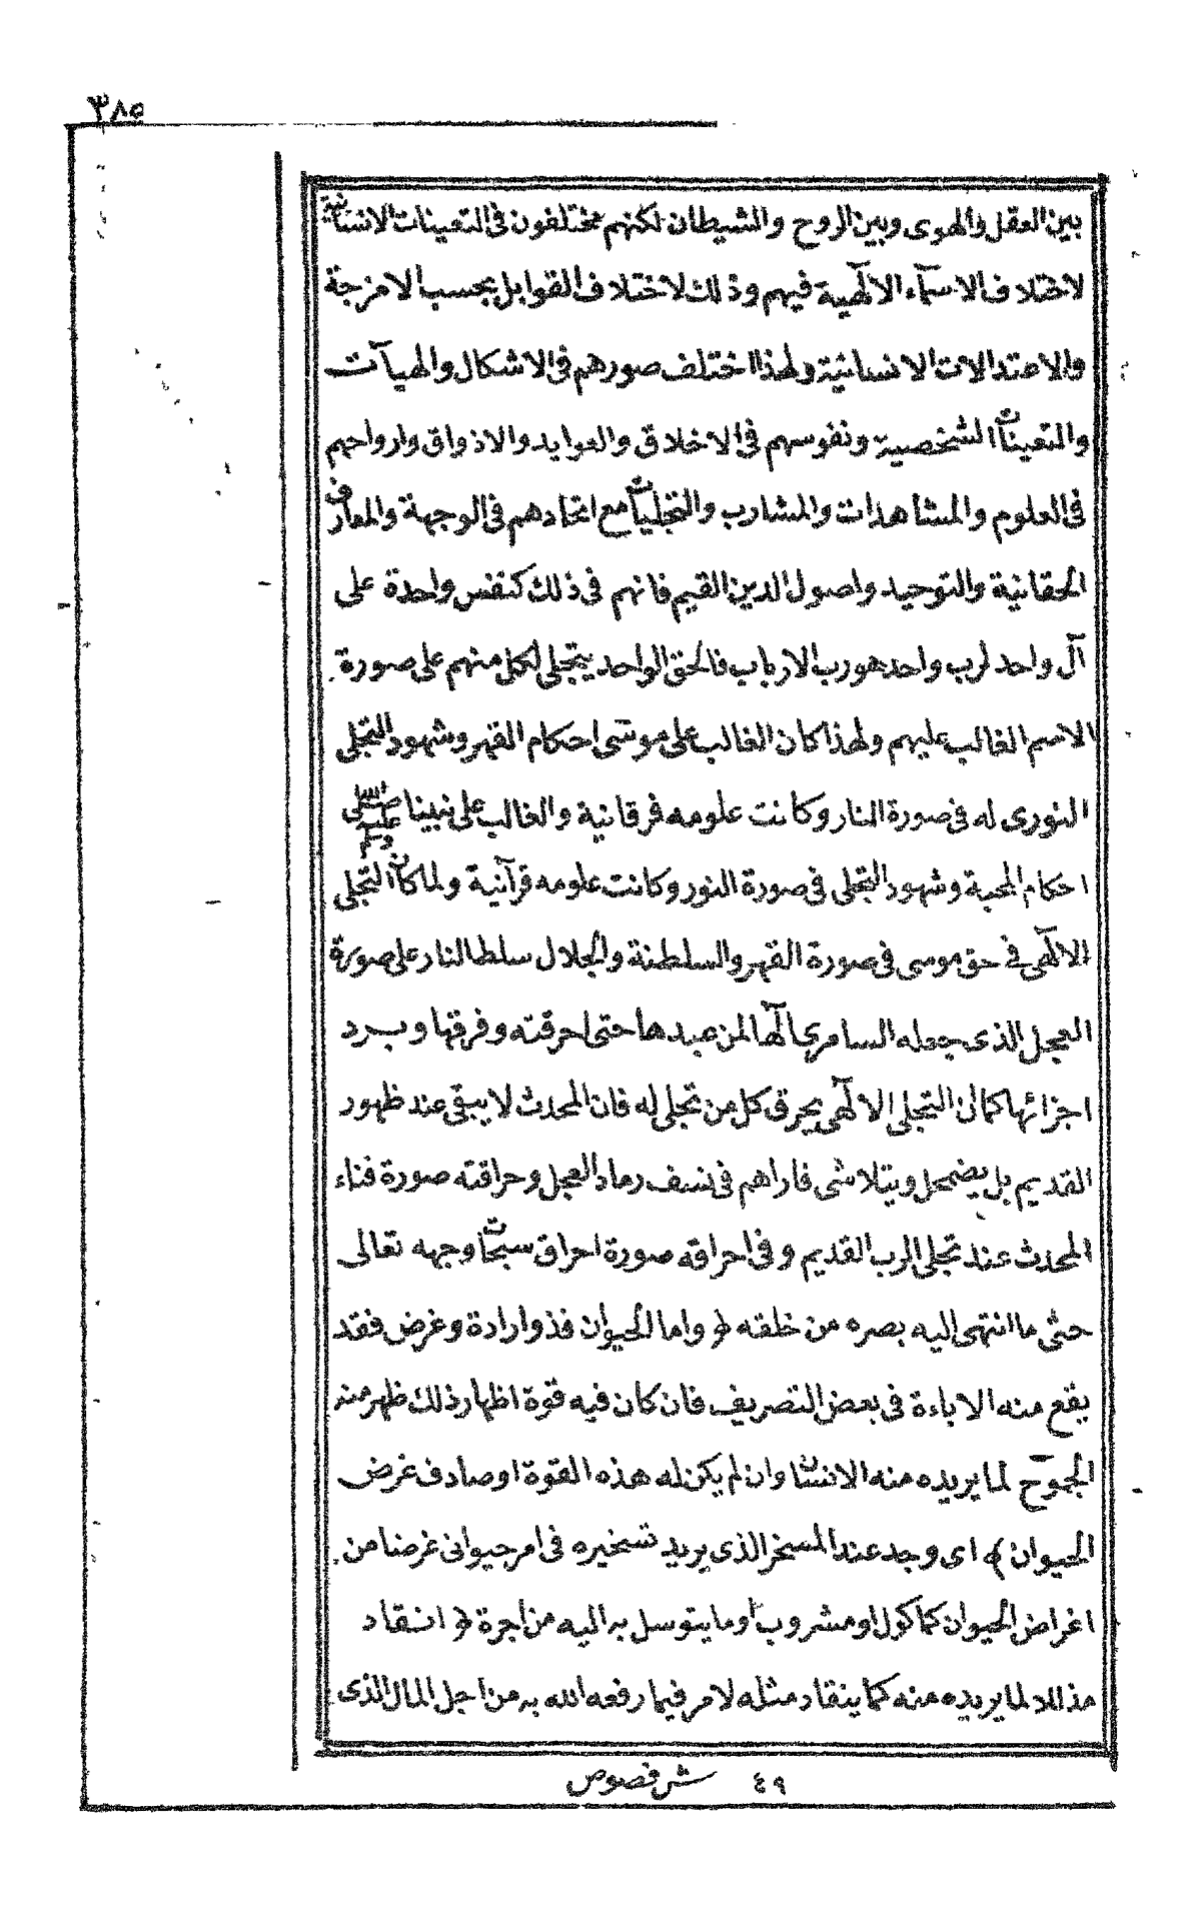 ٣٨٥
بين العقل والهوى وبين الروح والشيطان لكنهم مختلفون فى التعينات الانسانية
لاختلاف الاسمآء الالٓهية فيهم وذلك لاختلاف القوابل بحسب الامزجة
والاعتدالات الانسانية ولهذا اختلف صورهم فى الاشكال والهيآت
والتعينات الشخصية ونفوسهم فى الاخلاق والعوايد والاذواق وارواحهم
فى العلوم والمشاهدات والمشارب والتجليات مع اتحادهم فى الوجهة والمعارف
الحقانية والتوحيد واصول الدين القيم فانهم فى ذلك كنفس واحدة على
آل واحد لرب واحد هو رب الارباب فالحق الواحد يتجلى لكل منهم على صورة
الاسم الغالب عليهم ولهذا كان الغالب على موسى احكام القهر وشهود التجلى
النورى له فى صورة النار وكانت علومه فرقانية والغالب على نبينا صلى الله عليه وسلم
احكام المحبة وشهود التجلى فى صورة النور وكانت علومه قرآنية ولما كان التجلى
الالٓهى فى حق موسى فى صورة القهر والسلطنة والجلال سلط النار على صورة
العجل الذى جعله السامرى الٓها لمن عبدها حتى احرقته وفرقها وبرد
اجزائها كما ان التجلى الالٓهى يحرق كل من تجلى له فان المحدث لا يبقى عند ظهور
القديم بل يضمحل ويتلاشى فاراهم فى نسف رماد العجل وحراقته صورة فناء
المحدث عند تجلى الرب القديم وفى احراقه صورة احراق سبحات وجهه تعالى
حتى ما انتهى اليه بصره من خلقه ﴿ واما الحيوان فذو ارادة وغرض فقد
يقع منه الاباءة فى بعض التصريف فان كان فيه قوة اظهار ذلك ظهر منه
الجموح لما يريده منه الانسان وان لم يكن له هذه القوة او صادف غرض
الحيوان ﴾ اى وجد عند المسخر الذى يريد تسخيره فى امر حيوانى غرضا من
اغراض الحيوان كمأكول او مشروب او ما يتوسل به اليه من اجرة ﴿ انقاد
مذللا لما يريده منه كما ينقاد مثله لامر فيما رفعه الله به من اجل المال الذى
٤٩ شرفصوص